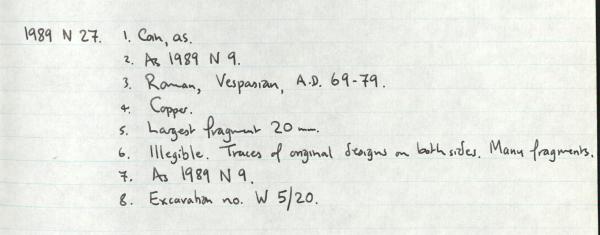 1989 N 27. 1. Coin, as.
2. As 1989 N 9.
3. Roman, Vespasian, A.D. 69-79.
4. Copper.
5. Largest fragment 20 mm.
6. Illegible. Traces of original designs on both sides. Many fragments.
7. As 1989 N 9.
8. Excavation no. W 5/20.